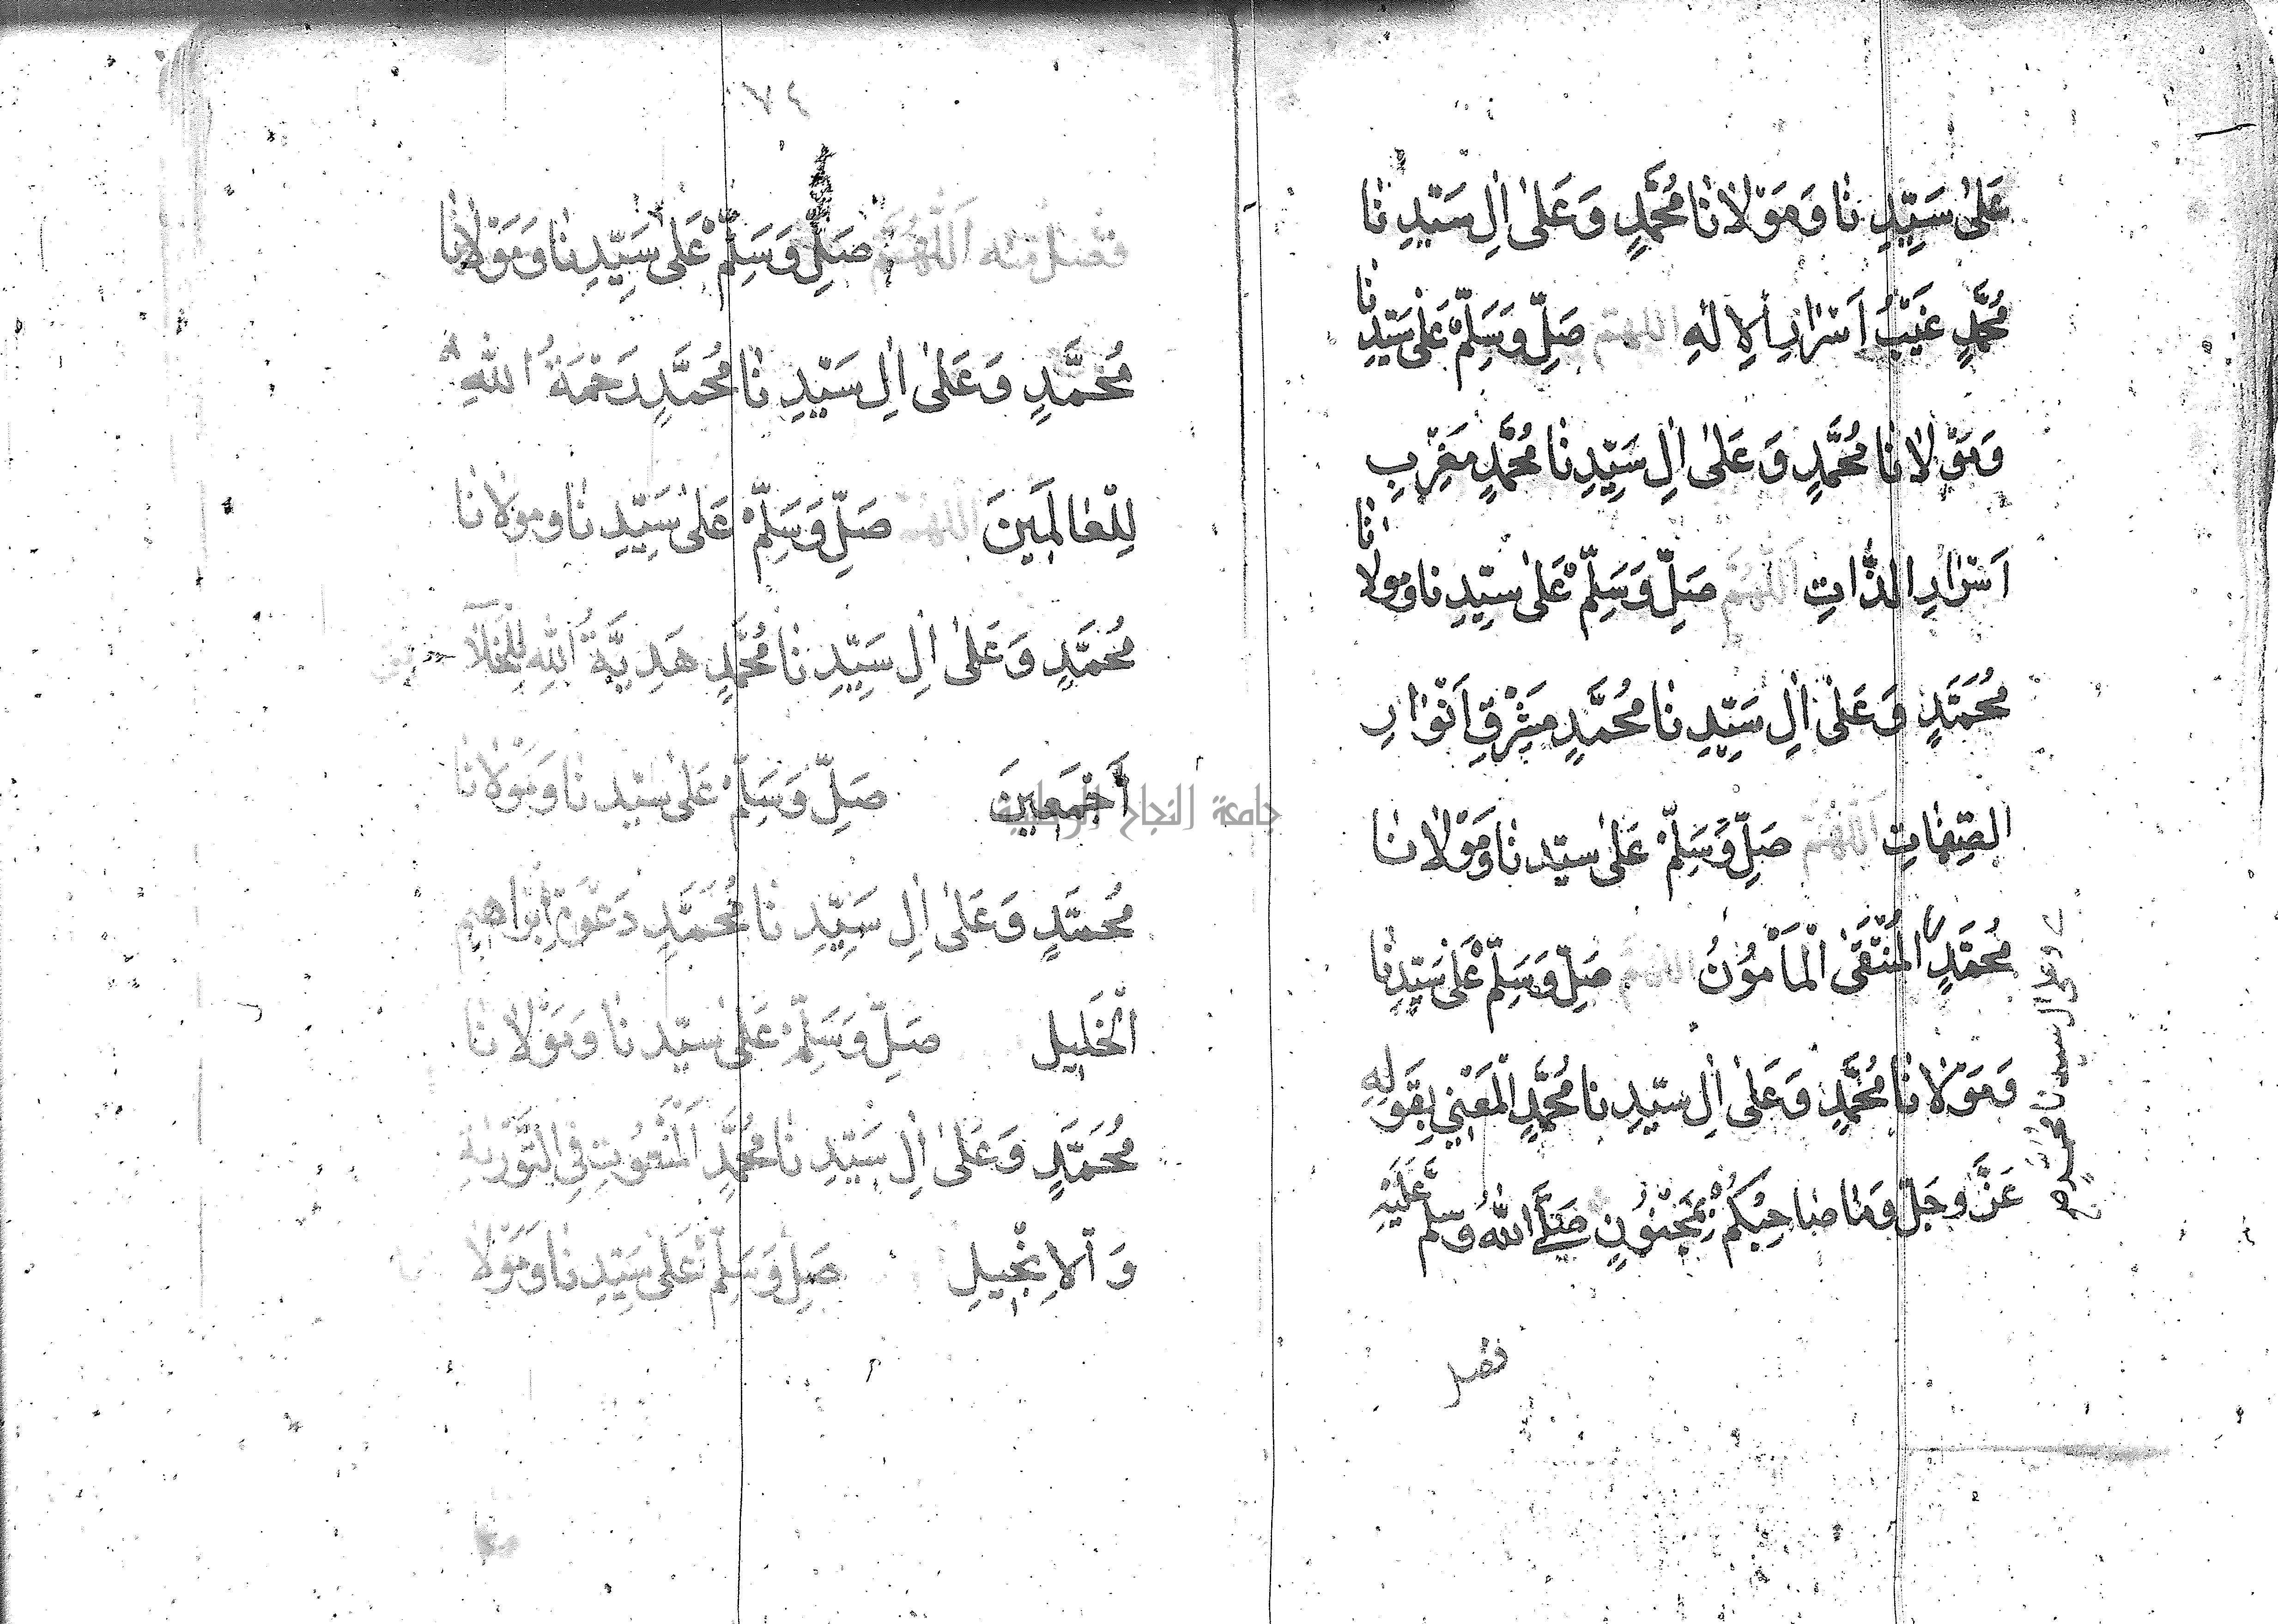 عَلىٰ سَيِّدِنَا وَمَوْلَانَا مُحَمَّدٍ وَعَلىٰ اٰلِ سَيِّدِنَا
مُحَمَّدٍ غَيْبِ اَسْرَارِ اْلاِلٰهِ اللهم صَلِّ وَسَلِّمْ عَلىٰ سَيِّدِنَا
وَمَوْلَانَا مُحَمَّدٍ وَعَلىٰ اٰلِ سَيِّدِنَا مُحَمَّدٍ مَغْرِبِ
اَسْرَارِ الذَّاتِ اَللّٰهُمَّ صَلِّ وَسَلِّمْ عَلىٰ سيّدِنا ومولانا
مُحَمَّدٍ وَعَلىٰ اٰلِ سَيِّدِنَا مُحَمَّدٍ مَشْرِقِ اَنْوَارِ
الصِّفَاتِ اَللّٰهُمَّ صَلِّ وَسَلِّمْ عَلىٰ سيّدنَا وَمَوْلَانَا
مُحَمَّدٍ الْمُنْتَقَىٰ الْمَأْمُوْنُ اللهمّ صَلِّ وَسَلِّمْ عَلىٰ سَيِّدِنَا
وعلى ال سيدنا محمد صح
وَمَوْلَانَا مُحَمَّدٍ وَعَلىٰ اٰلِ سيّدِنا مُحَمَّدٍ الْمَعْنِي بِقَوْلِهِ
عَزَّ وَجَلَّ وَمَا صَاحِبُكُمْ بِمَجْنُوْنٍ صَلَّى اللّٰهُ عَلَيْهِ وَسلم
فضل
٧٤
فضل منه اَللّٰهُمَّ صَلِّ وَسَلِّمْ عَلىٰ سَيِّدِنَا وَمَوْلَانَا
مُحَمَّدٍ وَعَلىٰ اٰلِ سَيِّدِنَا مُحَمَّدٍ رَحْمَةُ اللّٰهِ
لِلْعَالَمِينَ اللهم صَلِّ وَسَلِّمْ عَلىٰ سَيِّدِنَا ومولَانَا
مُحَمَّدٍ وَعَلىٰ اٰلِ سَيِّدِنَا مُحَمَّدٍ هَدِيَّةُ اللّٰهِ لِلْخَلَآئق
اَجْمَعِينَ صَلِّ وَسَلِّمْ عَلىٰ سيّدنَا وَمَوْلَانَا
مُحَمَّدٍ وَعَلىٰ اٰلِ سَيِّدِنَا مُحَمَّدٍ دَعْوَةِ اِبْرَاهِيم
الْخَلِيل صَلِّ وَسَلِّمْ عَلىٰ سيّدنَا وَمَوْلَانَا
مُحَمَّدٍ وَعَلىٰ اٰلِ سَيِّدِنَا مُحَمَّدٍ الْمَنْعُوْتِ فِي التَّوْرٰيةِ
وَالْاِنْجِيلِ صَلِّ وَسَلِّمْ عَلىٰ سَيِّدِنَا وَمَوْلَا
جامعة النجاح الوطنية